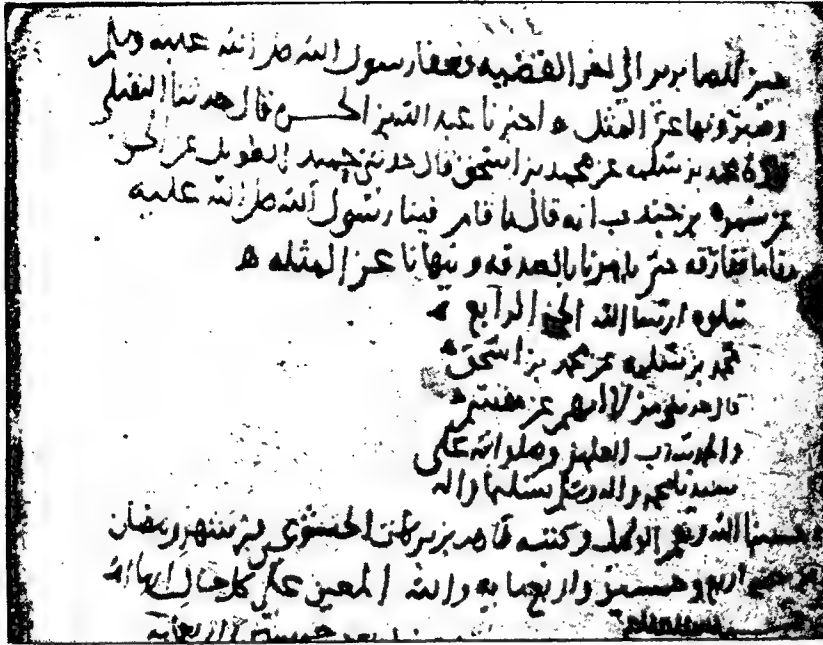 حين للصابرين الى اخر القصة فعفا رسول الله صلى الله عليه وسلم
وصبر ونها عن المثل ه اخبرنا عبد الله بن الحسن قال حدثنا النفيلي
محمد بن سلمه عن محمد بن اسحق قال حدثني حميد الطويل عن الحسن
عن سمره بن جندب انه قال ما قام فينا رسول الله صلى الله عليه
مقاما ففارقه حتى يامرنا بالصدقه وينهانا عن المثله ه
يتلوه ان شا الله الجز الرابع
محمد بن سلمه عن محمد بن اسحق
قال حدثني من لا اتهم عن مقسم
والحمد لله رب العلمين وصلواته على
سيدنا محمد واله وسلم تسليما
حسبنا الله ونعم الوكيل وكتبه طاهر بن بركات الخشوعي في شهر رمضان
من سنه اربع وخمسين واربعمايه والله المعين على كل حال
خمسين واربعمايه